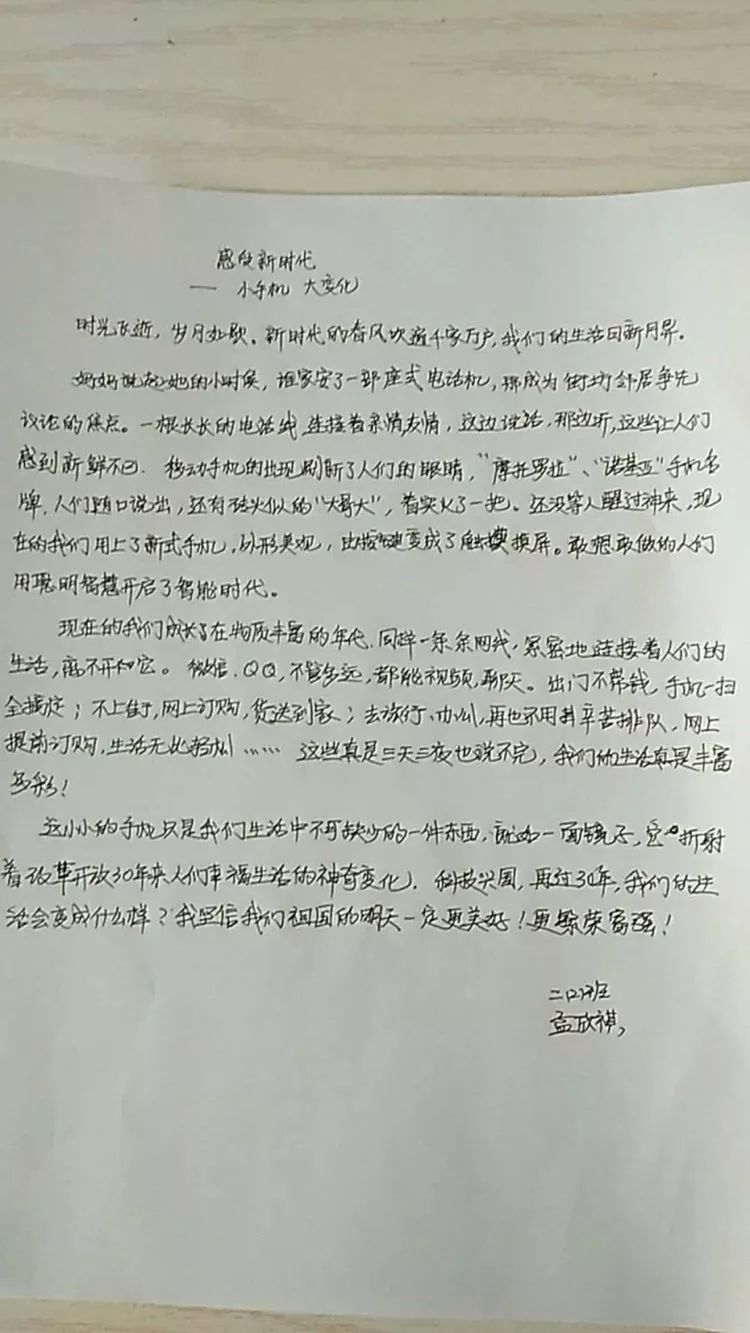 感受新时代
—— 小手机 大变化
时光飞逝，岁月如歌。新时代的春风吹遍千家万户，我们的生活日新月异。
妈妈说起她的小时候，谁家安了一部座式电话机，都成为街坊邻居争先
议论的焦点。一根长长的电话线连接着亲情友情，这边说话，那边听，这些让人们
感到新鲜不已．移动手机的出现刷新了人们的眼睛，“摩托罗拉”、“诺基亚”手机名
牌，人们随口说出，还有砖头似的“大哥大”，着实火了一把。还没等人醒过神来，现
在的我们用上了新式手机，外形美观，由按键变成了触摸摸屏。敢想敢做的人们
用聪明智慧开启了智能时代。
现在的我们成长在物质丰富的年代．同样一条条网线，紧密地连接着人们的
生活，离不开和它。微信、QQ，不管多远，都能视频，聊天。出门不带钱，手机一扫
全搞定；不上街，网上订购，货送到家；去旅行、办事，再也不用辛苦排队，网上
提前订购，生活无比轻松……这些真是三天三夜也说不完，我们的生活真是丰富
多彩！
这小小的手机只是我们生活中不可缺少的一件东西，就如一面镜子，它折射
着改革开放30年来人们幸福生活的神奇变化．科技兴国，再过30年，我们的生
活会变成什么样？我坚信我们祖国的明天一定更美好！更繁荣富强！
孟欣祺